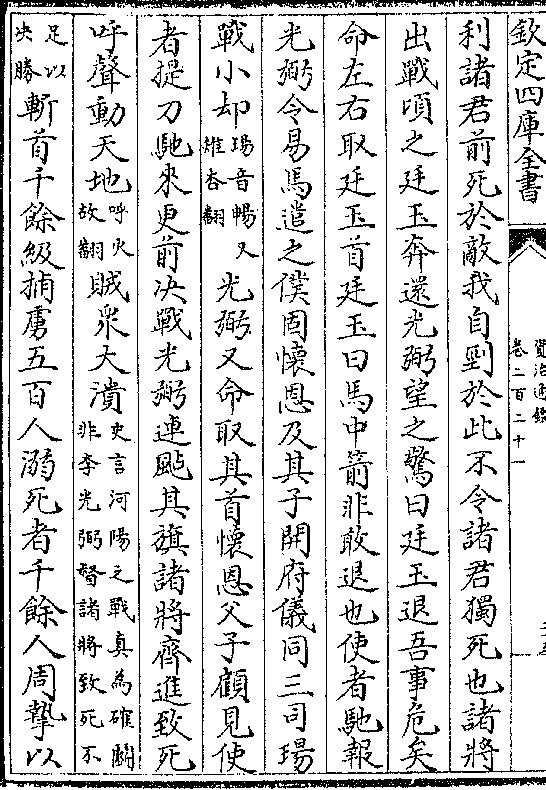 欽定四庫全書
資治通鑑
卷二百二十一
利諸君前死於敵我自剄於此不令諸君獨死也諸將
出戰頃之廷玉奔還光弼望之驚曰廷玉退吾事危矣
命左右取廷玉首廷玉曰馬中箭非敢退也使者馳報
光弼令易馬遣之僕固懷恩及其子開府儀同三司瑒
戰小却瑒音暢又雉杏翻光弼又命取其首懷恩父子顧見使
者提刀馳來更前决戰光弼連颭其旗諸將齊進致死
呼聲動天地呼火故翻賊衆大潰史言河陽之戰真為確鬭非李光弼督諸將致死不
足以决勝斬首千餘級捕虜五百人溺死者千餘人周摯以